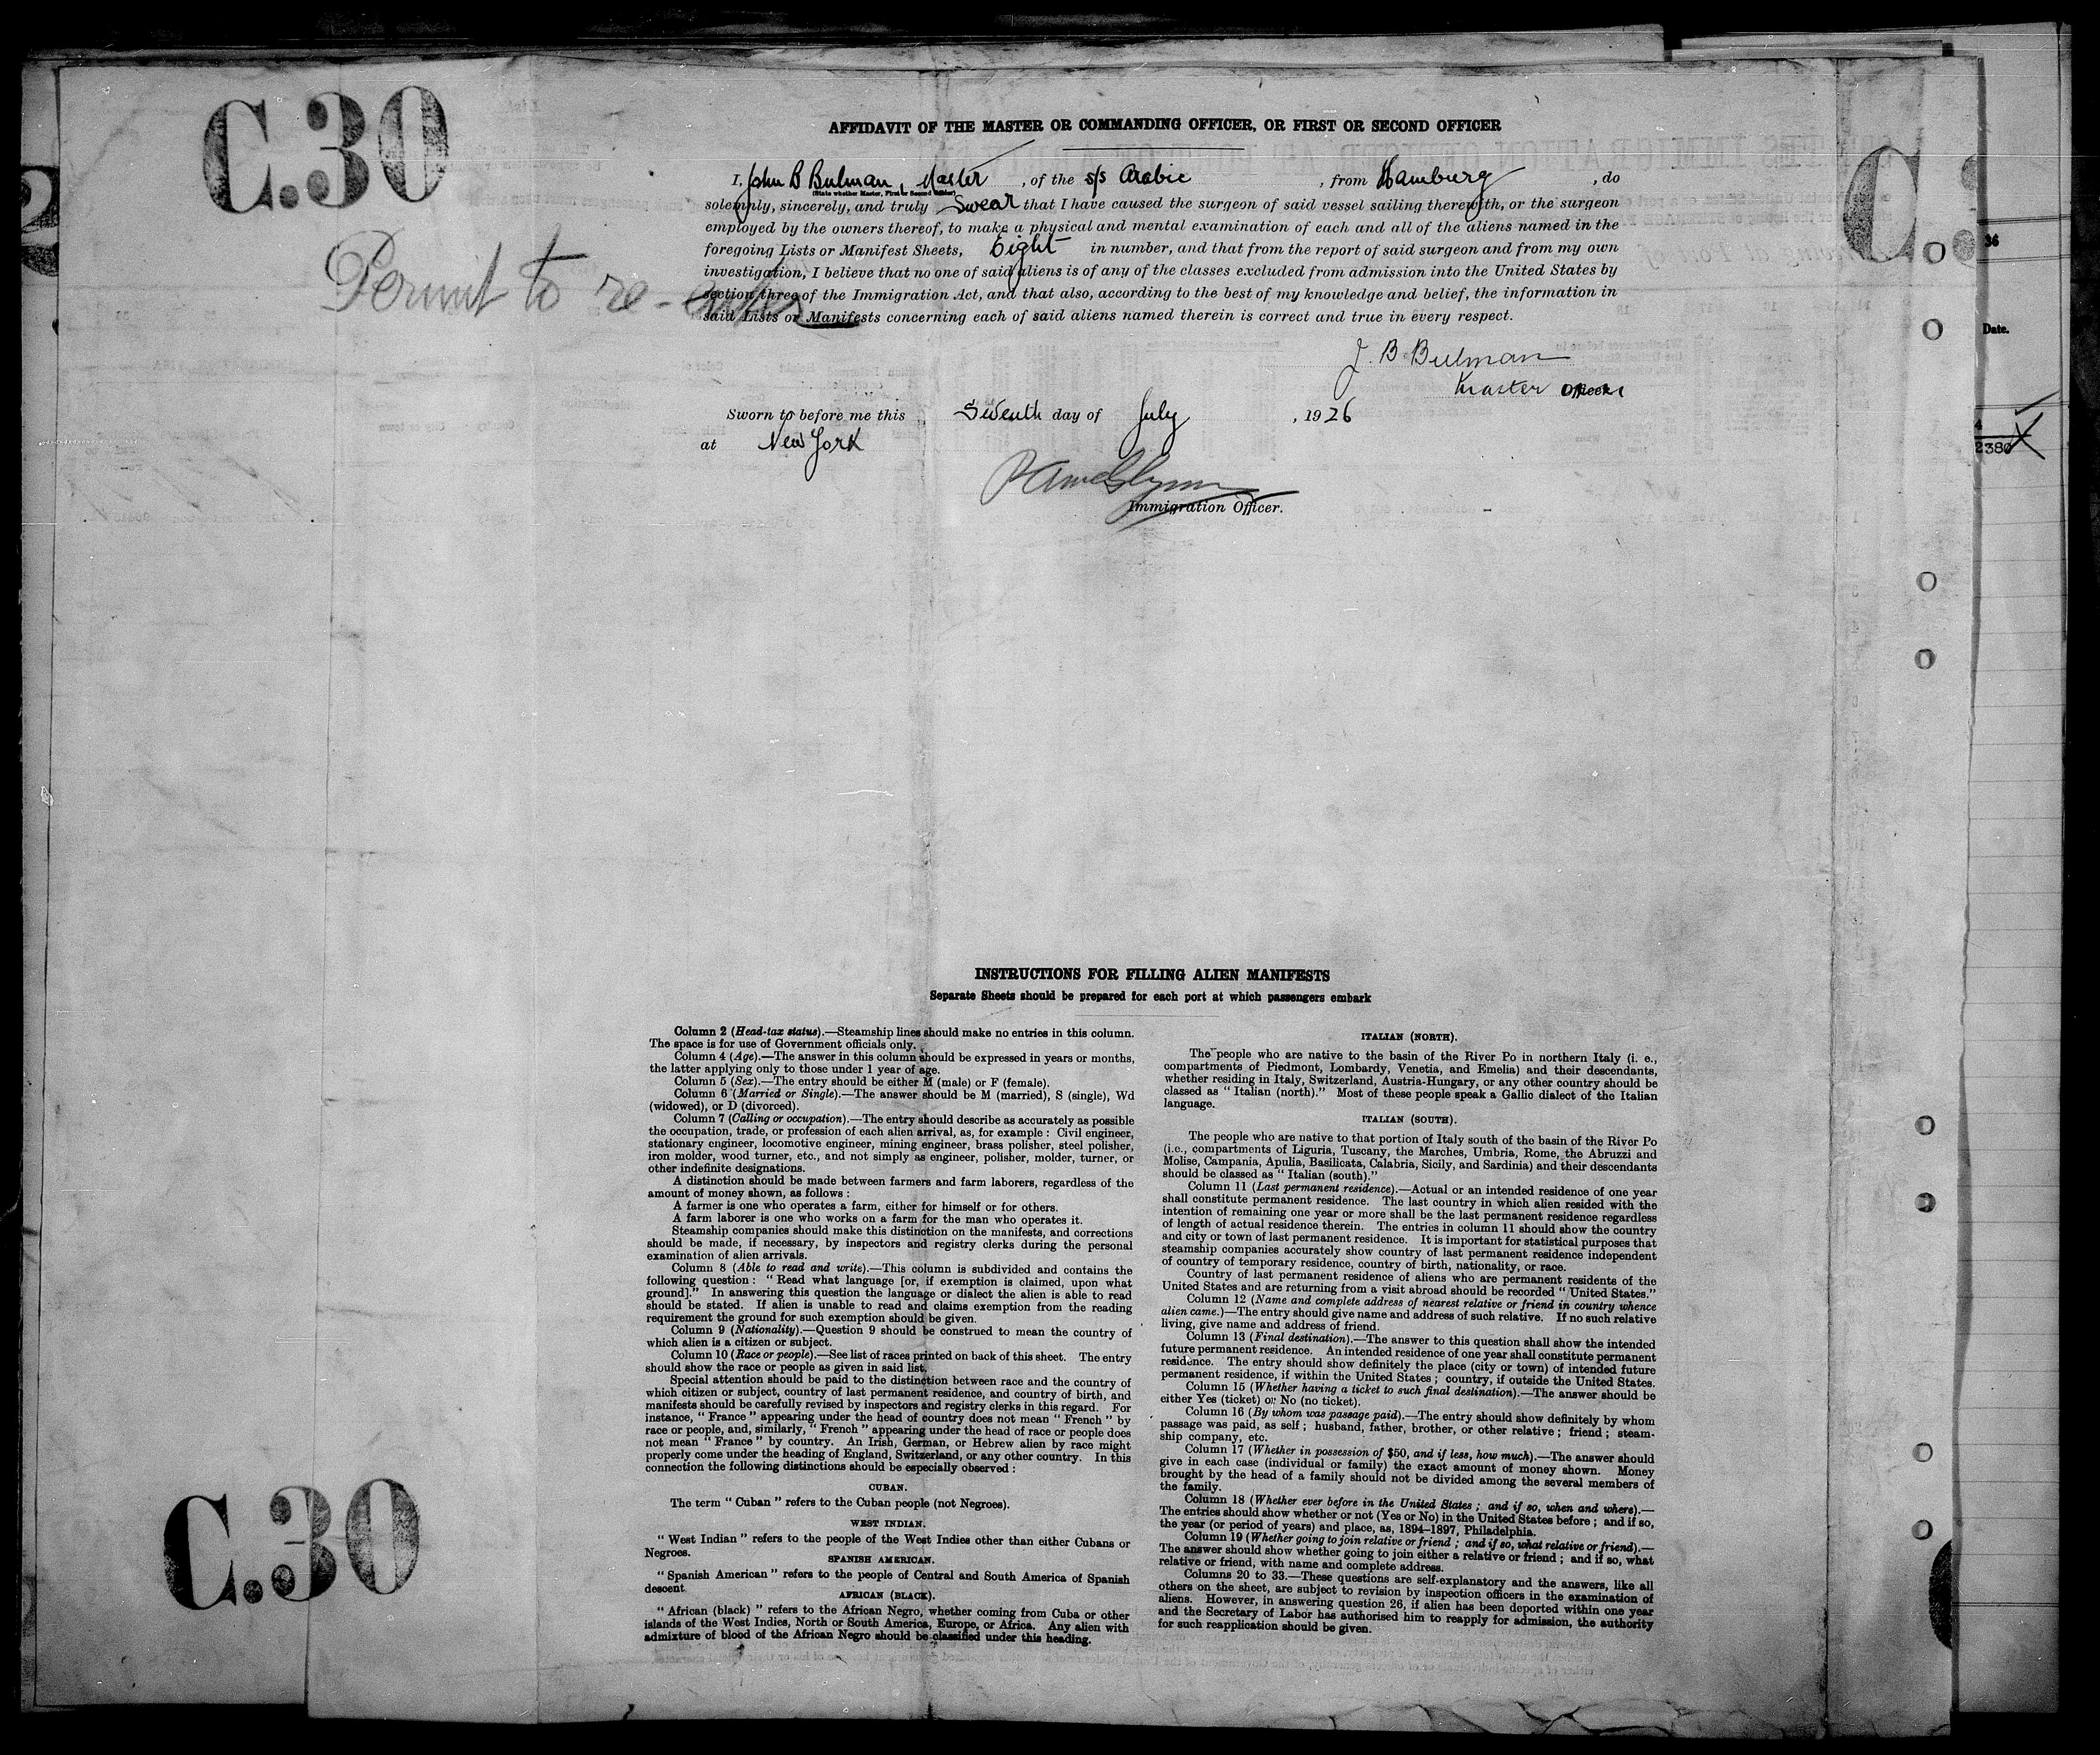 C.30
C.
2
AFFIDAVIT OF THE MASTER OR COMMANDING OFFICER, OR FIRST OR SECOND OFFICER
I, John B Bulman, Master, of the s/s Arabic, from Hamburg, do
(State whether Master, First or Second Officer)
solemnly, sincerely, and truly Swear that I have caused the surgeon of said vessel sailing therewith, or the surgeon
employed by the owners thereof, to make a physical and mental examination of each and all of the aliens named in the
foregoing Lists or Manifest Sheets, Eight in number, and that from the report of said surgeon and from my own
investigation, I believe that no one of said aliens is of any of the classes excluded from admission into the United States by
section three of the Immigration Act, and that also, according to the best of my knowledge and belief, the information in
said Lists or Manifests concerning each of said aliens named therein is correct and true in every respect.
Permit to re-enter
J. B. Bulman
Master Officer
Sworn to before me this Seventh day of July, 1926
at New York
Immigration Officer.
36
Date.
4
2380 X
INSTRUCTIONS FOR FILLING ALIEN MANIFESTS
Separate Sheets should be prepared for each port at which passengers embark
Column 2 (Head-tax status).—Steamship lines should make no entries in this column.
The space is for use of Government officials only.
Column 4 (Age).—The answer in this column should be expressed in years or months,
the latter applying only to those under 1 year of age.
Column 5 (Sex).—The entry should be either M (male) or F (female).
Column 6 (Married or Single).—The answer should be M (married), S (single), Wd
(widowed), or D (divorced).
Column 7 (Calling or occupation).—The entry should describe as accurately as possible
the occupation, trade, or profession of each alien arrival, as, for example : Civil engineer,
stationary engineer, locomotive engineer, mining engineer, brass polisher, steel polisher,
iron molder, wood turner, etc., and not simply as engineer, polisher, molder, turner, or
other indefinite designations.
A distinction should be made between farmers and farm laborers, regardless of the
amount of money shown, as follows :
A farmer is one who operates a farm, either for himself or for others.
A farm laborer is one who works on a farm for the man who operates it.
Steamship companies should make this distinction on the manifests, and corrections
should be made, if necessary, by inspectors and registry clerks during the personal
examination of alien arrivals.
Column 8 (Able to read and write).—This column is subdivided and contains the
following question : " Read what language [or, if exemption is claimed, upon what
ground]." In answering this question the language or dialect the alien is able to read
should be stated. If alien is unable to read and claims exemption from the reading
requirement the ground for such exemption should be given.
Column 9 (Nationality).—Question 9 should be construed to mean the country of
which alien is a citizen or subject.
Column 10 (Race or people).—See list of races printed on back of this sheet. The entry
should show the race or people as given in said list.
Special attention should be paid to the distinction between race and the country of
which citizen or subject, country of last permanent residence, and country of birth, and
manifests should be carefully revised by inspectors and registry clerks in this regard. For
instance, " France " appearing under the head of country does not mean " French " by
race or people, and, similarly, " French " appearing under the head of race or people does
not mean " France " by country. An Irish, German, or Hebrew alien by race might
properly come under the heading of England, Switzerland, or any other country. In this
connection the following distinctions should be especially observed :
CUBAN.
The term " Cuban " refers to the Cuban people (not Negroes).
WEST INDIAN.
" West Indian " refers to the people of the West Indies other than either Cubans or
Negroes.
SPANISH AMERICAN.
" Spanish American " refers to the people of Central and South America of Spanish
descent
AFRICAN (BLACK).
" African (black) " refers to the African Negro, whether coming from Cuba or other
islands of the West Indies, North or South America, Europe, or Africa. Any alien with
admixture of blood of the African Negro should be classified under this heading.
ITALIAN (NORTH).
The people who are native to the basin of the River Po in northern Italy (i. e.,
compartments of Piedmont, Lombardy, Venetia, and Emelia) and their descendants,
whether residing in Italy, Switzerland, Austria-Hungary, or any other country should be
classed as " Italian (north)." Most of these people speak a Gallic dialect of the Italian
language.
ITALIAN (SOUTH).
The people who are native to that portion of Italy south of the basin of the River Po
(i.e., compartments of Liguria, Tuscany, the Marches, Umbria, Rome, the Abruzzi and
Molise, Campania, Apulia, Basilicata, Calabria, Sicily, and Sardinia) and their descendants
should be classed as " Italian (south)."
Column 11 (Last permanent residence).—Actual or an intended residence of one year
shall constitute permanent residence. The last country in which alien resided with the
intention of remaining one year or more shall be the last permanent residence regardless
of length of actual residence therein. The entries in column 11 should show the country
and city or town of last permanent residence. It is important for statistical purposes that
steamship companies accurately show country of last permanent residence independent
of country of temporary residence, country of birth, nationality, or race.
Country of last permanent residence of aliens who are permanent residents of the
United States and are returning from a visit abroad should be recorded " United States."
Column 12 (Name and complete address of nearest relative or friend in country whence
alien came.)—The entry should give name and address of such relative. If no such relative
living, give name and address of friend.
Column 13 (Final destination).—The answer to this question shall show the intended
future permanent residence. An intended residence of one year shall constitute permanent
residence. The entry should show definitely the place (city or town) of intended future
permanent residence, if within the United States ; country, if outside the United States.
Column 15 (Whether having a ticket to such final destination).—The answer should be
either Yes (ticket) or No (no ticket).
Column 16 (By whom was passage paid).—The entry should show definitely by whom
passage was paid, as self ; husband, father, brother, or other relative ; friend ; steam-
ship company, etc.
Column 17 (Whether in possession of $50, and if less, how much).—The answer should
give in each case (individual or family) the exact amount of money shown. Money
brought by the head of a family should not be divided among the several members of
the family.
Column 18 (Whether ever before in the United States ; and if so, when and where).—
The entries should show whether or not (Yes or No) in the United States before ; and if so,
the year (or period of years) and place, as, 1894-1897, Philadelphia.
Column 19 (Whether going to join relative or friend ; and if so, what relative or friend).—
The answer should show whether going to join either a relative or friend ; and if so, what
relative or friend, with name and complete address.
Columns 20 to 33.—These questions are self-explanatory and the answers, like all
others on the sheet, are subject to revision by inspection officers in the examination of
aliens. However, in answering question 26, if alien has been deported within one year
and the Secretary of Labor has authorised him to reapply for admission, the authority
for such reapplication should be given.
C.30